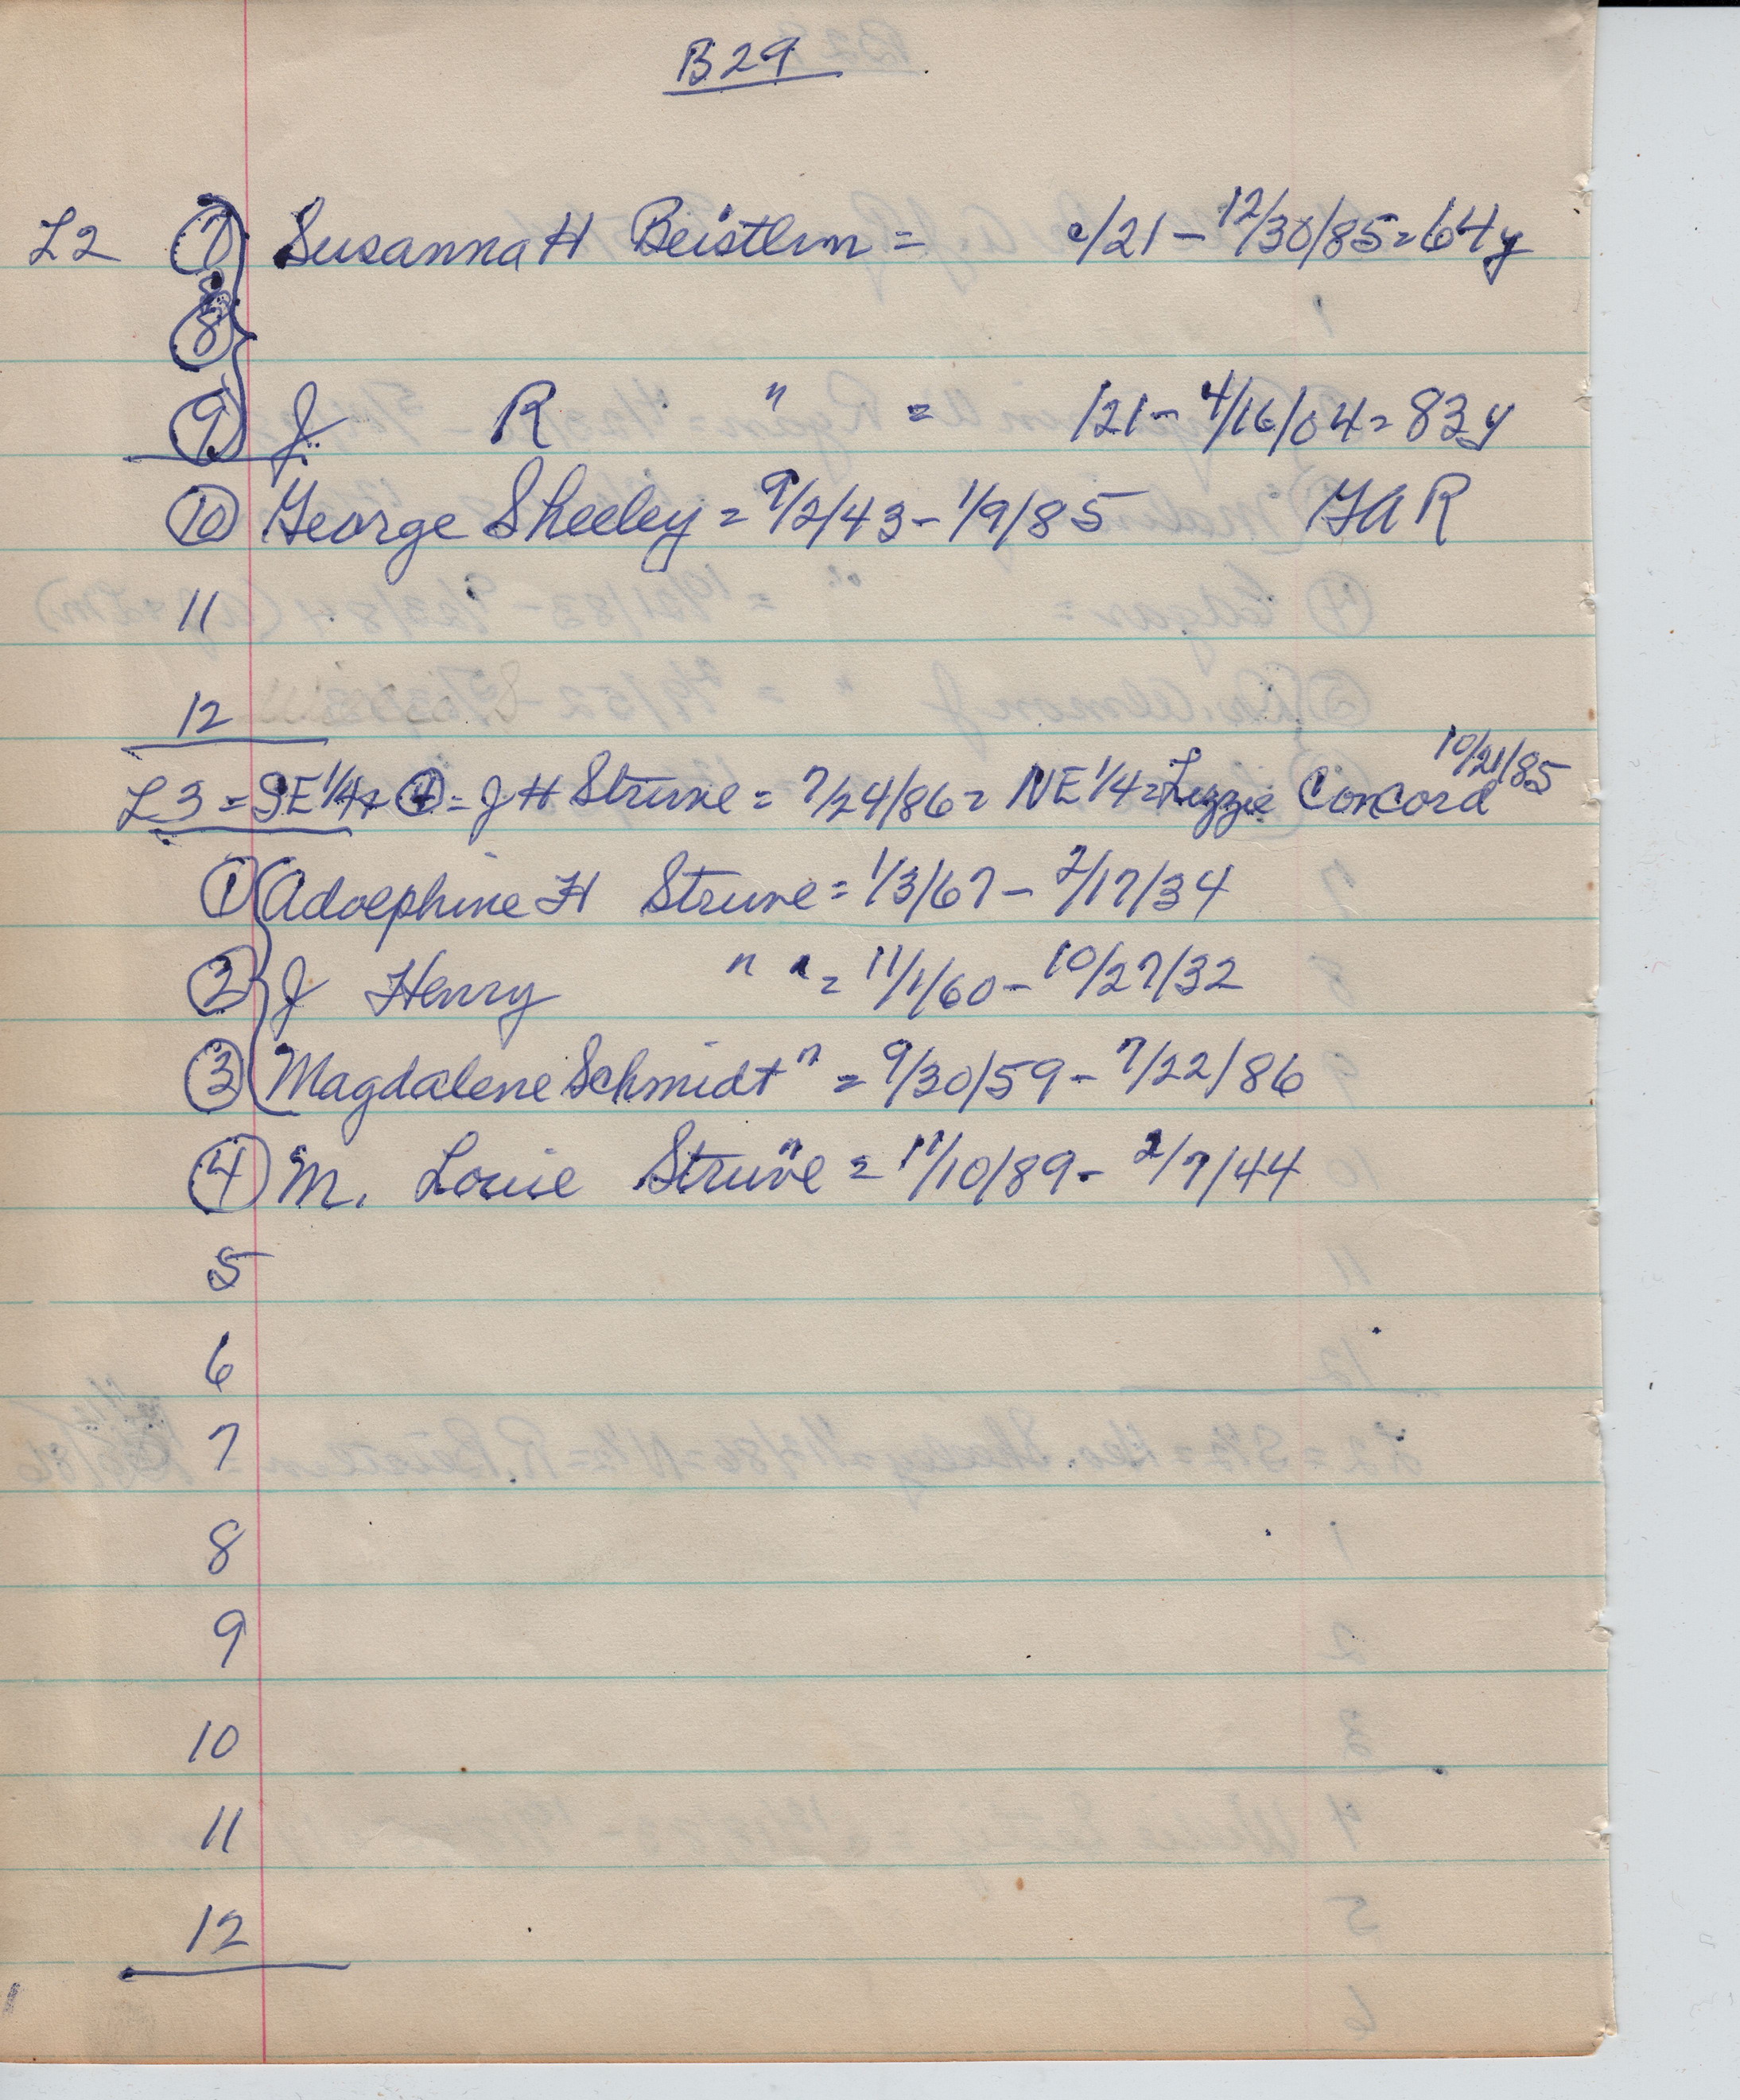 B29
L2 ⑦ Susanna H Beistlin = c/21 - 12/30/85 = 64y
⑧
⑨ J. R " = /21 - 4/16/04 = 83y
⑩ George Sheeley = 9/2/43 - 1/9/85 GAR
11
12
10/21/85
L3 = SE 1/4 = J H Struve = 7/24/86 = NE 1/4 = Lizzie Concord
① Adolphine H Struve = 1/3/67 - 2/17/34
② J Henry " " = 11/1/60 - 10/27/32
③ Magdalene Schmidt " = 9/30/59 - 7/22/86
④ M. Louise Struve = 11/10/89 - 2/7/44
5
6
7
8
9
10
11
12